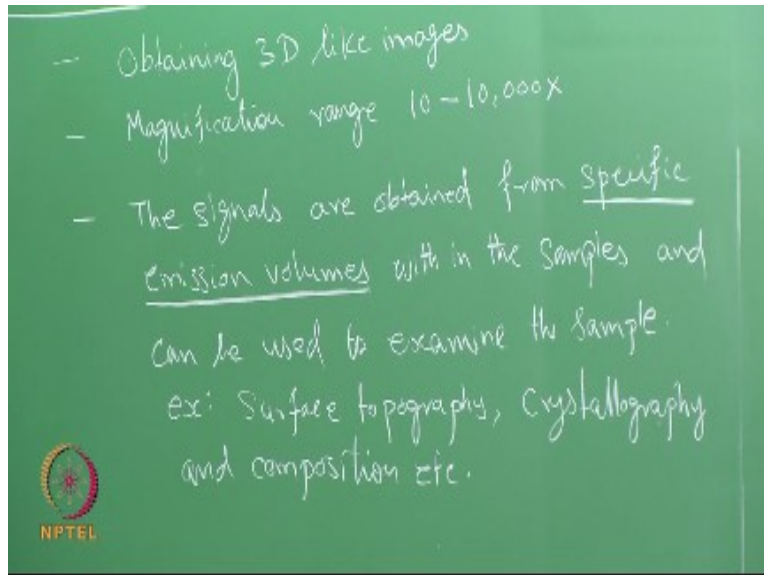 - Obtaining 3D like images
- Magnification range 10-10,000X
- The signals are obtained from specific
emission volumes with in the samples and
can be used to examine the sample.
ex: Surface topography, Crystallography
and composition etc.
NPTEL